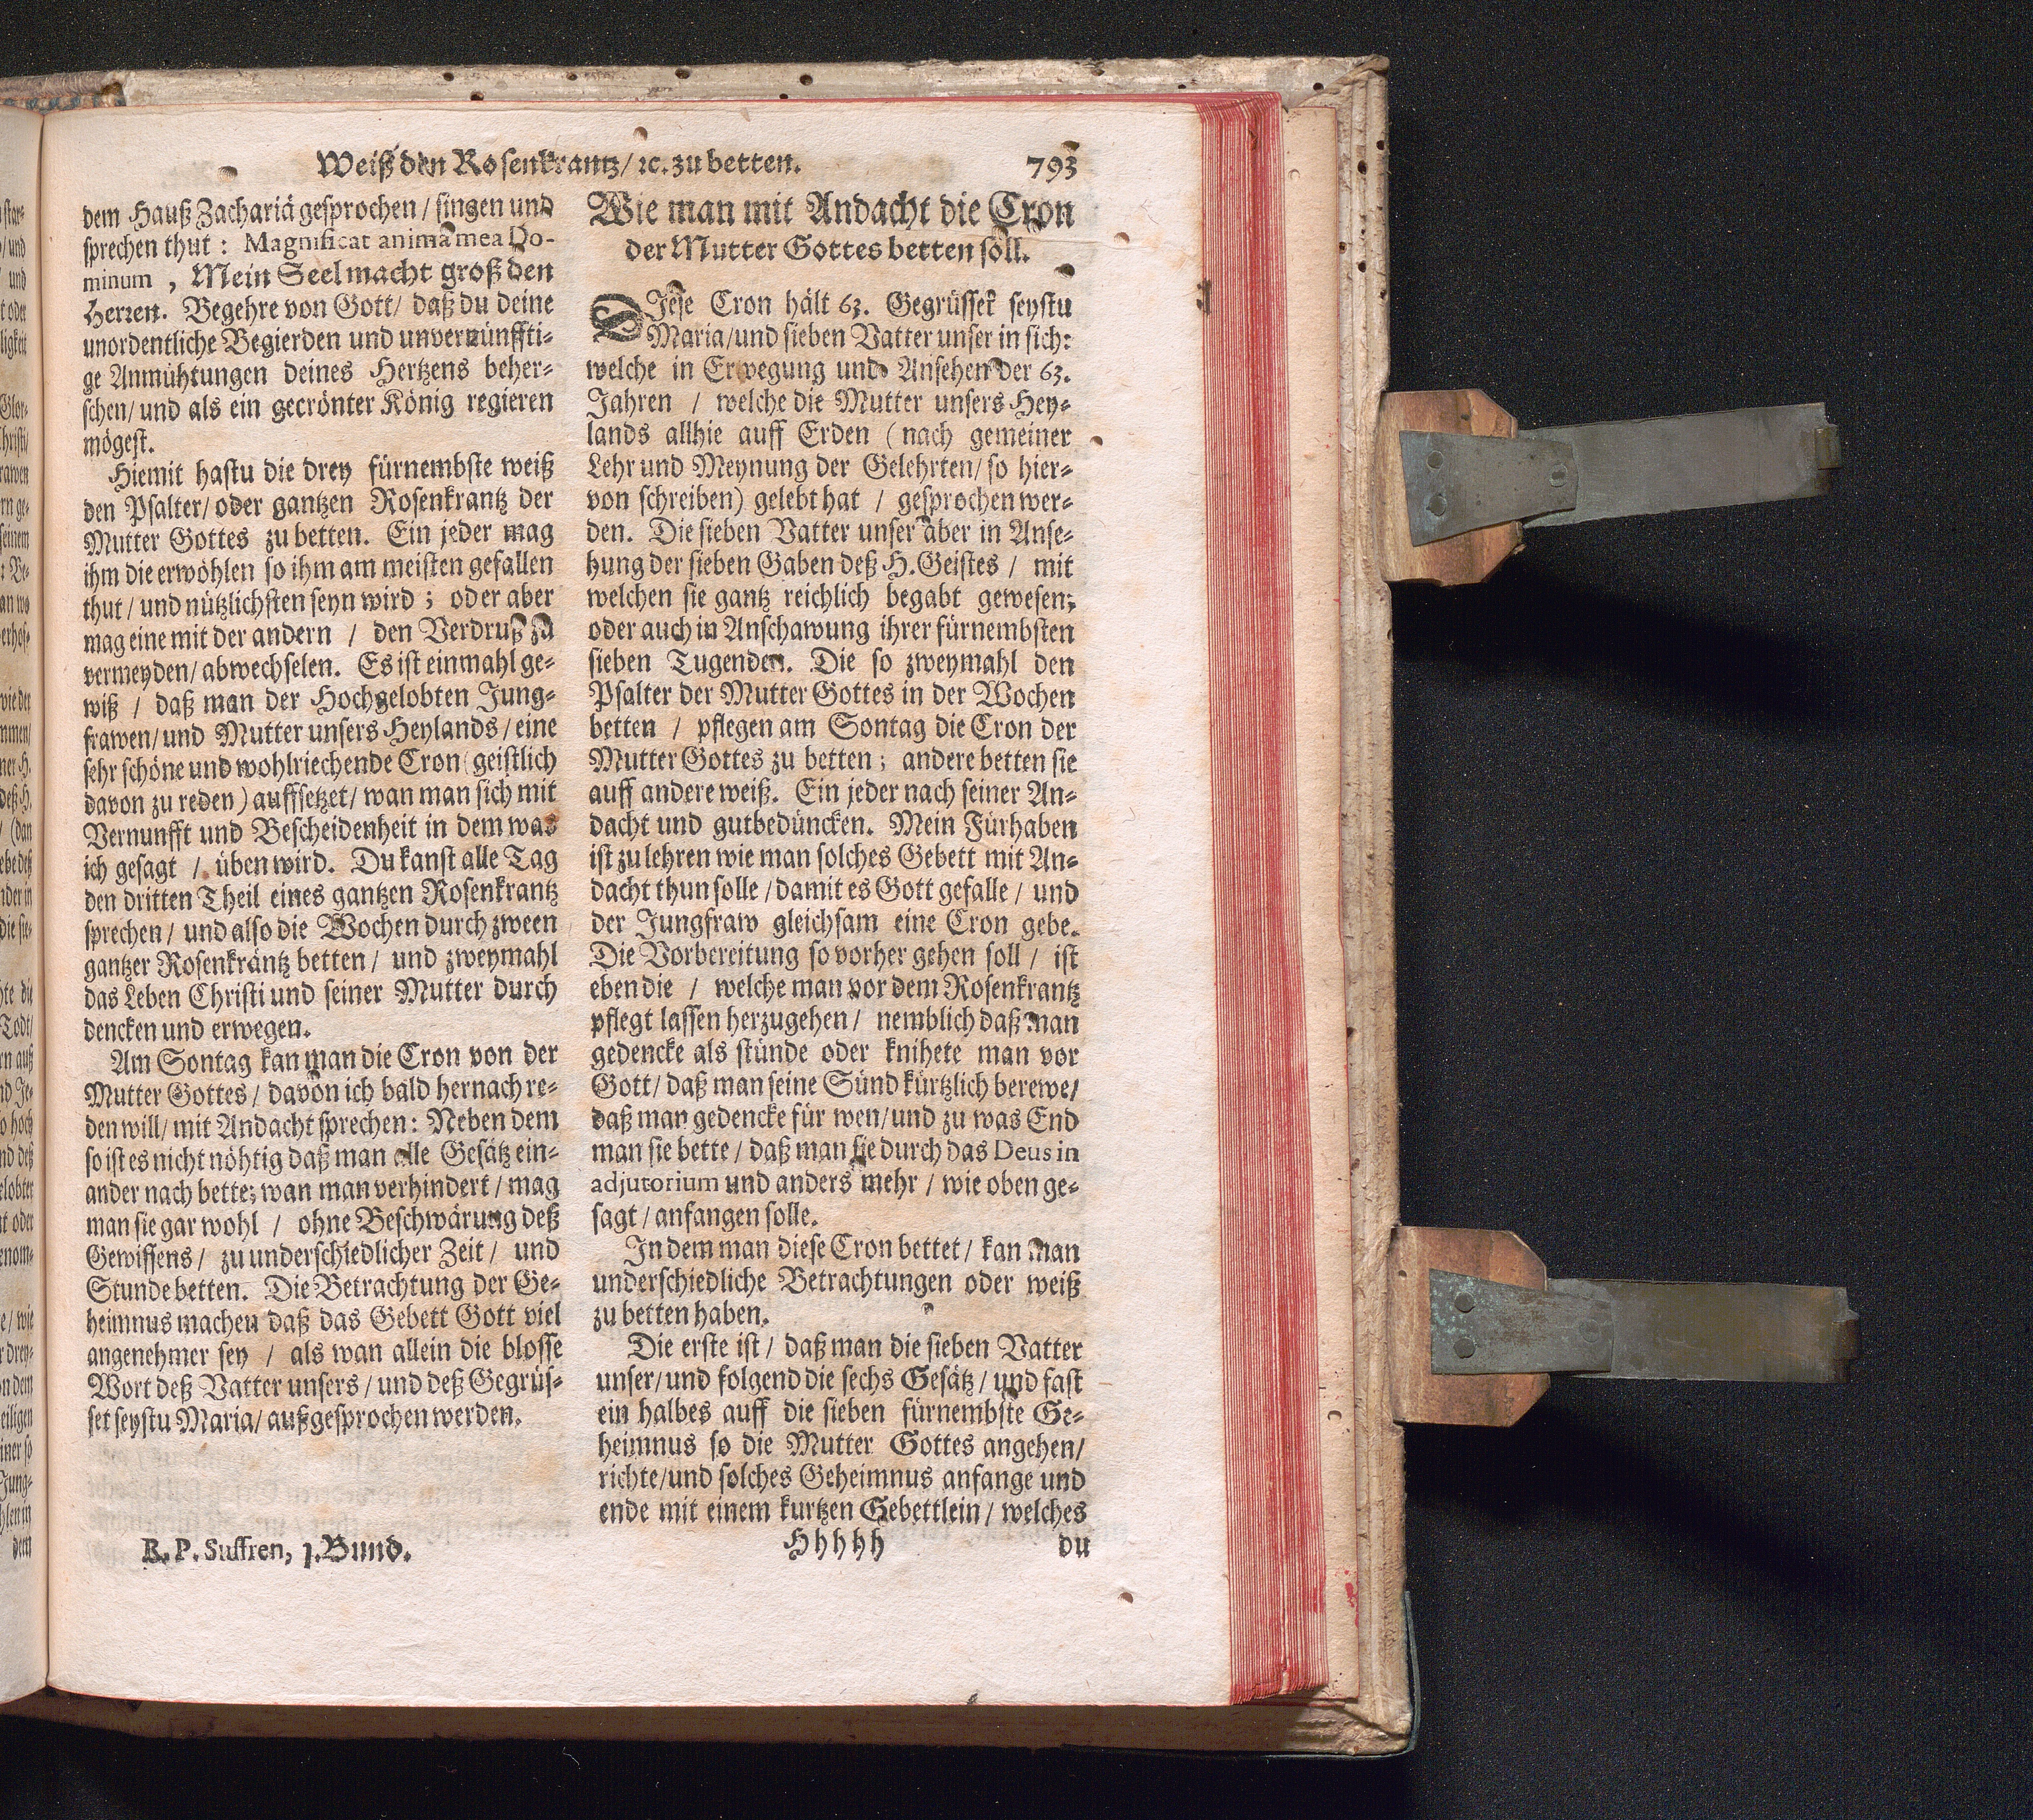 Weiß den Rosenkrantz/ ꝛc. zu betten. 793
dem Hauß Zachariä gesprochen / singen und
sprechen thut : Magnificat anima mea Do-
minum , Mein Seel macht groß den
Herren. Begehre von Gott/ daß du deine
unordentliche Begierden und unvernünffti-
ge Anmühtungen deines Hertzens beher-
schen/ und als ein gecrönter König regieren
mögest.
Hiemit hastu die drey fürnembste weiß
den Psalter/ oder gantzen Rosenkrantz der
Mutter Gottes zu betten. Ein jeder mag
ihm die erwöhlen so ihm am meisten gefallen
thut / und nützlichsten seyn wird ; oder aber
mag eine mit der andern / den Verdruß zu
vermeyden/ abwechselen. Es ist einmahl ge-
wiß / daß man der Hochgelobten Jung-
frawen/ und Mutter unsers Heylands / eine
sehr schöne und wohlriechende Cron (geistlich
davon zu reden) auffsetzet/ wan man sich mit
Vernunfft und Bescheidenheit in dem was
ich gesagt / üben wird. Du kanst alle Tag
den dritten Theil eines gantzen Rosenkrantz
sprechen / und also die Wochen durch zween
gantzer Rosenkräntz betten / und zweymahl
das Leben Christi und seiner Mutter durch
dencken und erwegen.
Am Sontag kan man die Cron von der
Mutter Gottes / davon ich bald hernach re-
den will/ mit Andacht sprechen: Neben dem
so ist es nicht nöhtig daß man alle Gesätz ein-
ander nach bette; wan man verhindert / mag
man sie gar wohl / ohne Beschwärung deß
Gewissens / zu underschiedlicher Zeit / und
Stunde betten. Die Betrachtung der Ge-
heimnus machen daß das Gebett Gott viel
angenehmer sey / als wan allein die blosse
Wort deß Vatter unsers / und deß Gegrüs-
set seystu Maria/ außgesprochen werden.
R. P. Suffren, 1. Bund.
Wie man mit Andacht die Cron
der Mutter Gottes betten soll.
DIese Cron hält 63. Gegrüsset seystu
Maria/und sieben Vatter unser in sich:
welche in Erwegung und Ansehen der 63.
Jahren / welche die Mutter unsers Hey-
lands allhie auff Erden (nach gemeiner
Lehr und Meynung der Gelehrten/ so hier-
von schreiben) gelebt hat / gesprochen wer-
den. Die sieben Vatter unser aber in Anse-
hung der sieben Gaben deß H. Geistes / mit
welchen sie gantz reichlich begabt gewesen;
oder auch in Anschawung ihrer fürnembsten
sieben Tugenden. Die so zweymahl den
Psalter der Mutter Gottes in der Wochen
betten / pflegen am Sontag die Cron der
Mutter Gottes zu betten ; andere betten sie
auff andere weiß. Ein jeder nach seiner An-
dacht und gutbedüncken. Mein Fürhaben
ist zu lehren wie man solches Gebett mit An-
dacht thun solle / damit es Gott gefalle / und
der Jungfraw gleichsam eine Cron gebe.
Die Vorbereitung so vorher gehen soll / ist
eben die / welche man vor dem Rosenkrantz
pflegt lassen herzugehen / nemblich daß man
gedencke als stünde oder knihete man vor
Gott/ daß man seine Sünd kürtzlich berewe/
daß man gedencke für wen/ und zu was End
man sie bette / daß man sie durch das Deus in
adjutorium und anders mehr / wie oben ge-
sagt / anfangen solle.
In dem man diese Cron bettet / kan man
underschiedliche Betrachtungen oder weiß
zu betten haben.
Die erste ist / daß man die sieben Vatter
unser/ und folgend die sechs Gesätz / und fast
ein halbes auff die sieben fürnembste Ge-
heimnus so die Mutter Gottes angehen/
richte/und solches Geheimnus anfange und
ende mit einem kurtzen Gebettlein / welches
Hhhhh du